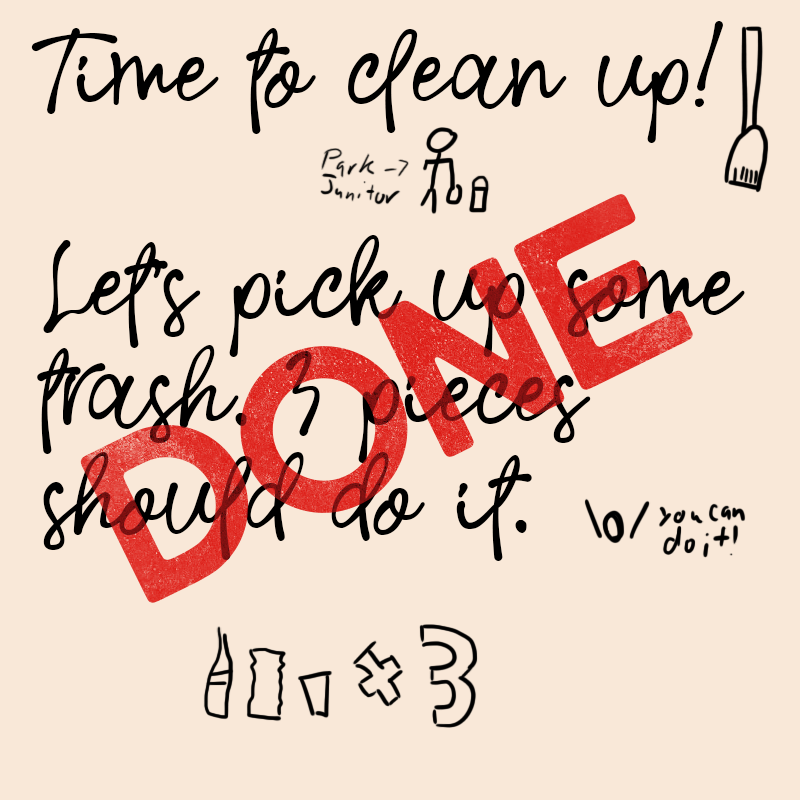 Time to clean up!
Park ->
Junitor
Let's pick up some
trash. 3 pieces
should do it.
DONE
\o/ you can
do it!
x 3